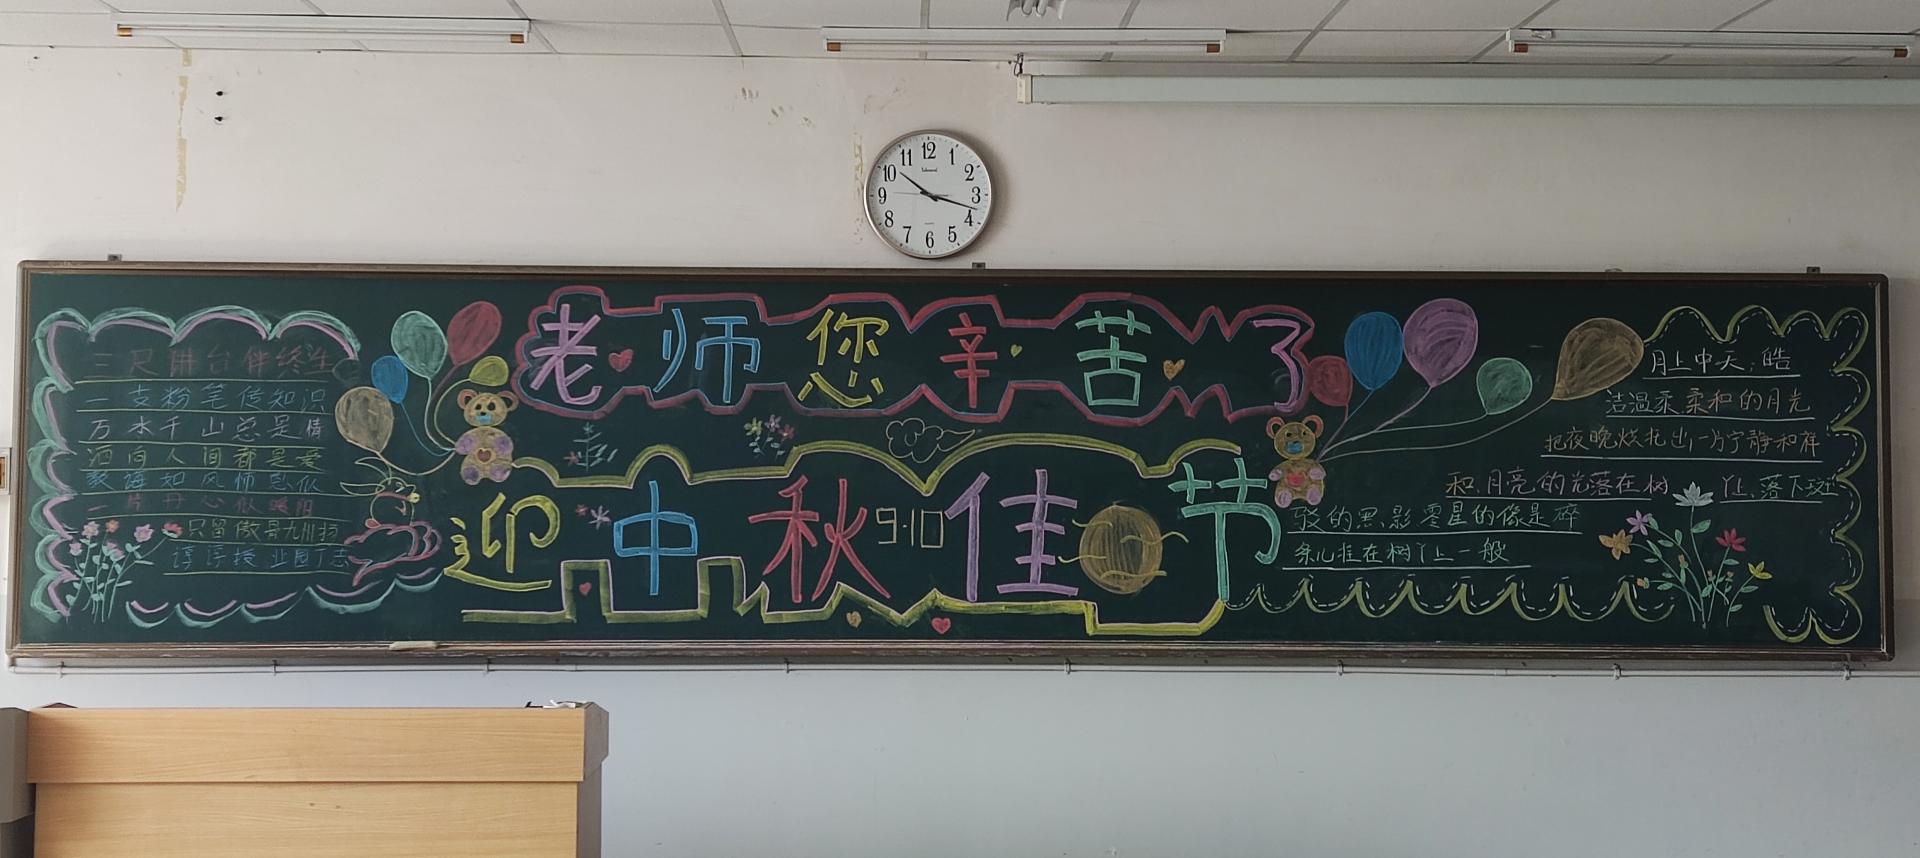 12
1
2
3
4
5
6
7
8
9
10
11
老师您辛苦了
迎中秋佳节
9·10
三尺讲台伴终生
一支粉笔传知识
万水千山总是情
洒向人间都是爱
教诲如风师恩似
一片丹心似暖阳
只留傲骨九州扬
谆谆授业园丁志
月上中天，皓
洁温柔柔和的月光
把夜晚烘托出一方宁静和祥
和，月亮的光落在树 丫上，落下斑
驳的黑影零星的像是碎
条儿挂在树丫上一般